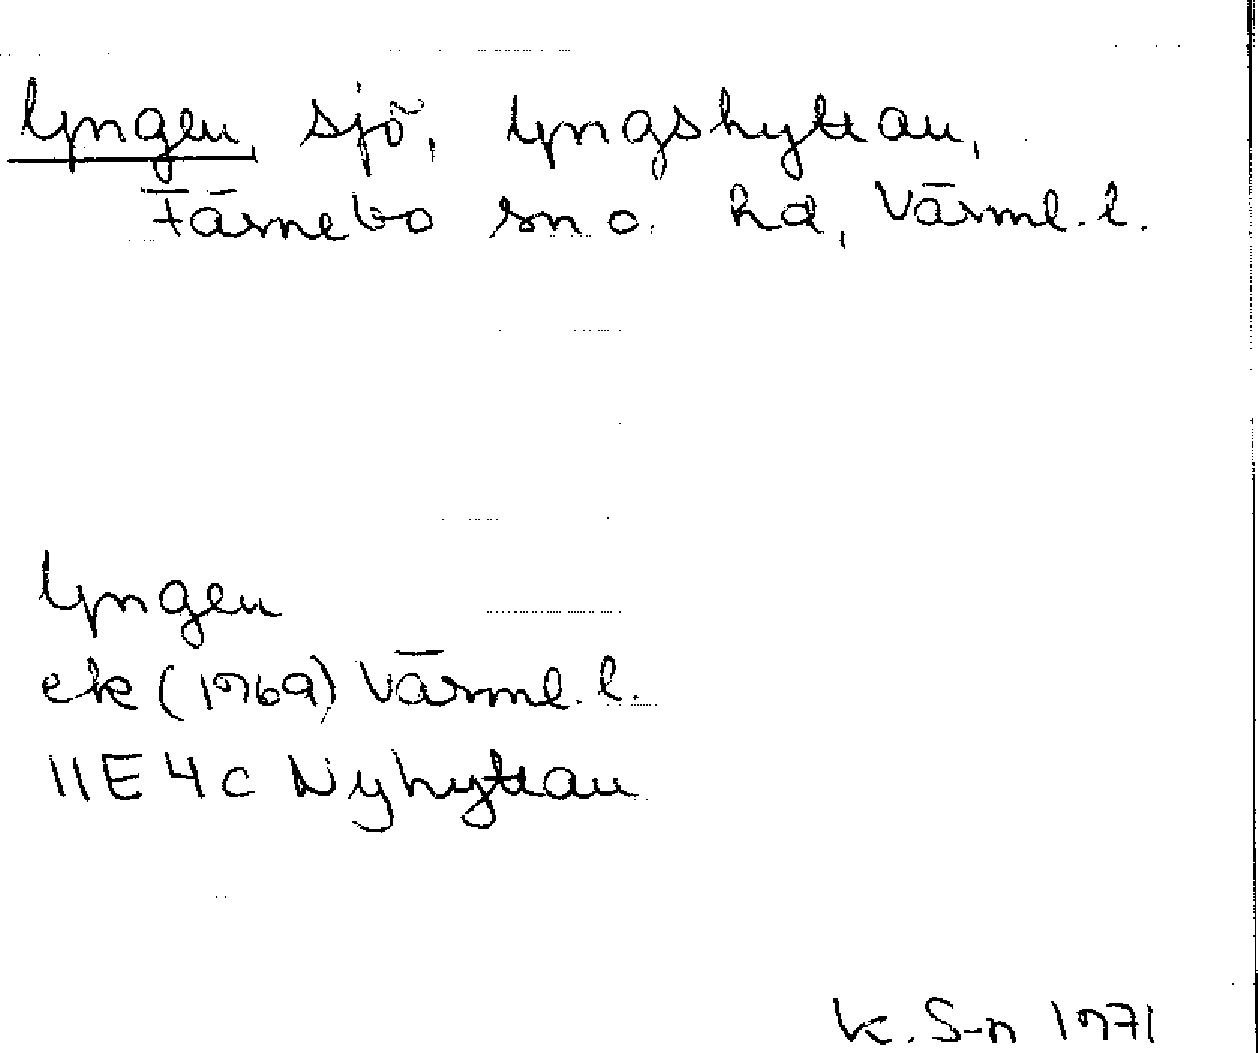 Lyngen, sjö, Lyngshyttan,
Färnebo sn o. hd, Värml. l.
Lyngen
ek (1969) Värml. l.
11E 4c Nyhyttan
K. S-n 1971